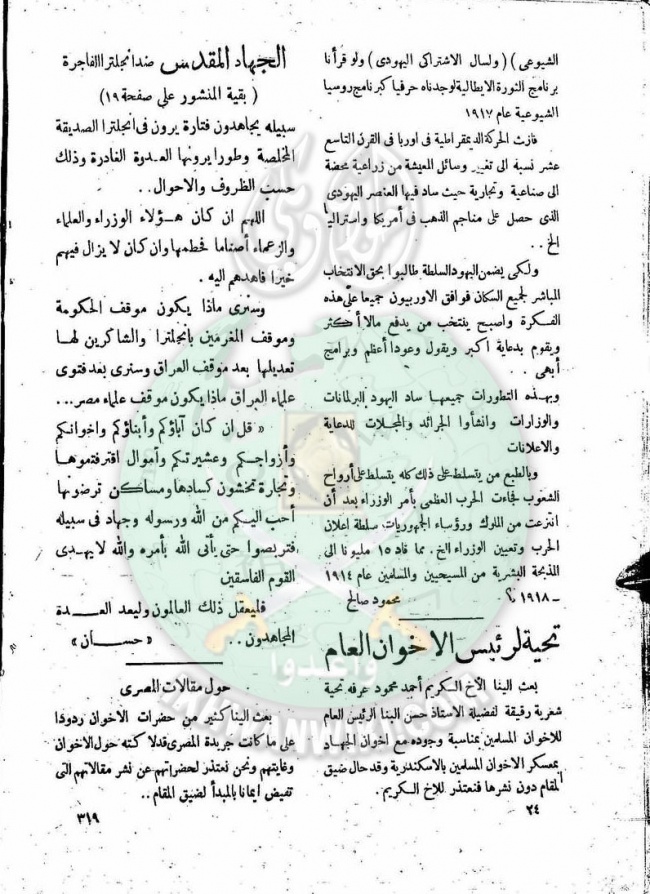 الشيوعى ) ( ولسال الاشتراكى اليهودى ) ولو قرأنا
برنامج الثورة الايطالية لوجدناه حرفيا كبرنامج روسيا
الشيوعية عام ١٩١٧
فازت الحركة الديمقراطية فى اوربا فى القرن التاسع
عشر نسبة الى تغيير وسائل المعيشة من زراعية محضة
الى صناعية وتجارية حيث ساد فيها العنصر اليهودى
الذى حصل على مناجم الذهب فى أمريكا واستراليا
الخ . .
ولكى يضمن اليهود السلطة طالبوا بحق الانتخاب
المباشر لجميع السكان فوافق الاوربيون جميعا على هذه
الفكرة واصبح ينتخب من يدفع مالا أكثر
ويقوم بدعاية اكبر ويقول وعودا أعظم وبرامج
أبهى .
وبهذه التطورات جميعها ساد اليهود البرلمانات
والوزارات وانشأوا الجرائد والمجلات للدعاية
والاعلانات
وبالطبع من يتسلط على ذلك كله يتسلط على أرواح
الشعوب فجاءت الحرب العظمى بأمر الوزراء بعد أن
انتزعت من الملوك ورؤساء الجمهوريات سلطة اعلان
الحرب وتعيين الوزراء الخ . مما قاد ١٥ مليونا الى
المذبحة البشرية من المسيحيين والمسلمين عام ١٩١٤
– ١٩١٨ ؟
محمود صالح
تحية لرئيس الاخوان العام
بعث الينا الأخ الكريم أحمد محمود عرفه تحية
شعرية رقيقة لفضيلة الاستاذ حسن البنا الرئيس العام
للاخوان المسلمين بمناسبة وجوده مع اخوان الجهاد
بمعسكر الاخوان المسلمين بالاسكندرية وقد حال ضيق
المقام دون نشرها فنعتذر للاخ الكريم .
٢٤
الجهاد المقدس ضد انجلترا الفاجرة
( بقية المنشور على صفحة ١٩ )
سبيله يجاهدون فتارة يرون فى انجلترا الصديقة
المخلصة وطورا يرونها العدوة الغادرة وذلك
حسب الظروف والاحوال . .
اللهم ان كان هؤلاء الوزراء والعلماء
والزعماء أصناما فحطمها وان كان لا يزال فيهم
خيرا فاهدهم اليه .
وسنرى ماذا يكون موقف الحكومة
وموقف المغرمين بانجلترا والشاكرين لها
تعديلها بعد موقف العراق وسنرى بعد فتوى
علماء العراق ماذا يكون موقف علماء مصر . . .
« قل ان كان آباؤكم وأبناؤكم واخوانكم
وأزواجكم وعشيرتكم وآموال اقترفتموها
وتجارة تخشون كسادها ومساكن ترضونها
أحب اليكم من الله ورسوله وجهاد فى سبيله
فتربصوا حتى يأتى الله بأمره والله لا يهدى
القوم الفاسقين
فليعقل ذلك العالمون وليعد العدة
المجاهدون . . « حسان »
حول مقالات المصرى
بعث الينا كثير من حضرات الاخوان ردودا
على ما كانت جريدة المصرى قد لاكته حول الاخوان
وغايتهم ونحن نعتذر لحضراتهم عن نشر مقالاتهم التى
تفيض ايمانا بالمبدأ لضيق المقام . .
٣١٩
وأعدوا